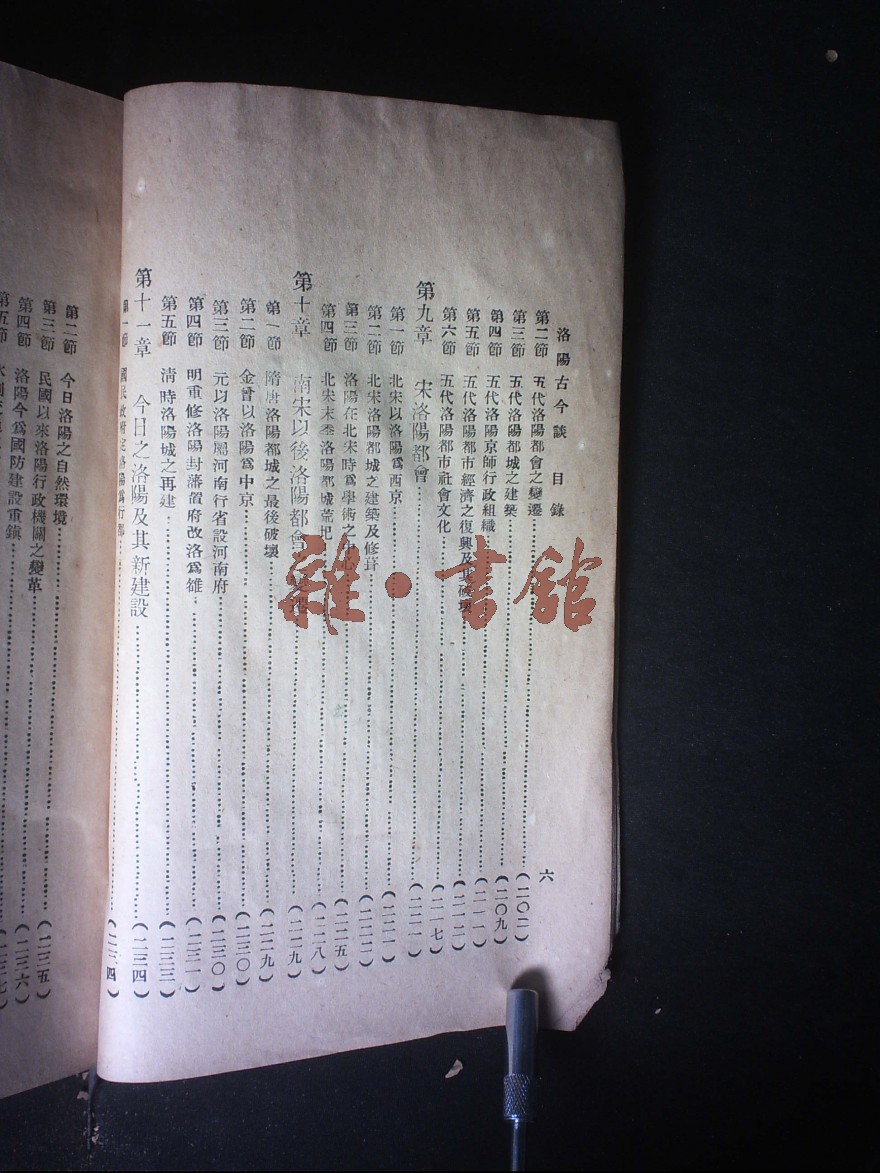 洛陽古今談 目錄
六
第二節 五代洛陽都會之變遷（二〇二）
第三節 五代洛陽都城之建築（二〇九）
第四節 五代洛陽京師行政組織（二一一）
第五節 五代洛陽都市經濟之復興及其破壞（二一二）
第六節 五代洛陽都市社會文化（二一七）
第九章 宋洛陽都會（二二一）
第一節 北宋以洛陽爲西京（二二一）
第二節 北宋洛陽都城之建築及修葺（二二二）
第三節 洛陽在北宋時爲學術之中心（二二五）
第四節 北宋末季洛陽都城荒圯（二二八）
第十章 南宋以後洛陽都會（二二九）
第一節 隋唐洛陽都城之最後破壞（二二九）
第二節 金曾以洛陽爲中京（二三〇）
第三節 元以洛陽屬河南行省設河南府（二三〇）
第四節 明重修洛陽封藩置府改洛爲雒（二三一）
第五節 淸時洛陽城之再建（二三三）
第十一章 今日之洛陽及其新建設（二三四）
第一節 國民政府定洛陽爲行都（二三四）
第二節 今日洛陽之自然環境
第三節 民國以來洛陽行政機關之變革（二三五）
第四節 洛陽今爲國防建設重鎭（二三六）
第五節（二三七）
雜·書館